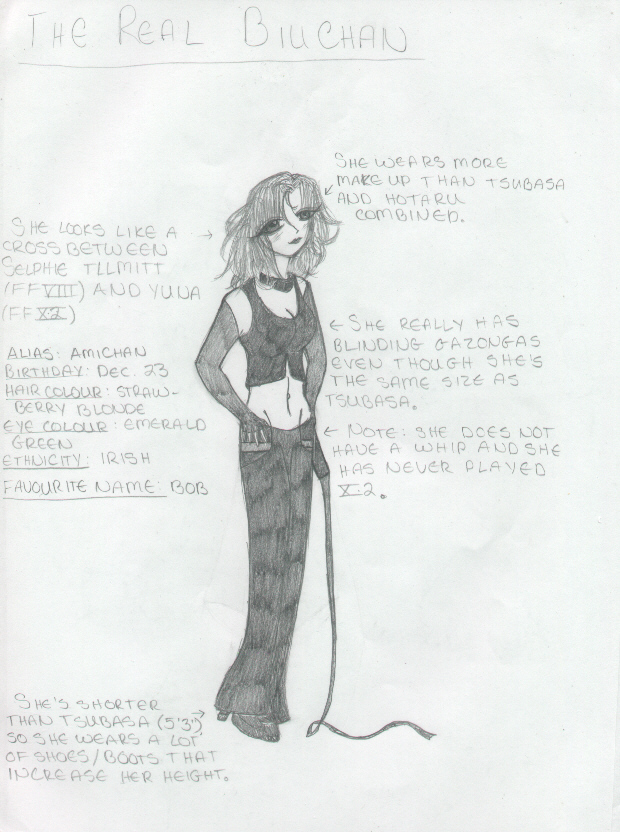 THE REAL BIUCHAN
SHE WEARS MORE
MAKE UP THAN TSUBASA
AND HOTARU
COMBINED.
SHE LOOKS LIKE A
CROSS BETWEEN
SELPHIE TLLMITT
(FFVIII) AND YUNA
(FFX-2)
← SHE REALLY HAS
BLINDING GAZONGAS
EVEN THOUGH SHE'S
THE SAME SIZE AS
TSUBASA.
ALIAS: AMICHAN
BIRTHDAY: DEC. 23
HAIR COLOUR: STRAW-
BERRY BLONDE
EYE COLOUR: EMERALD
GREEN
ETHNICITY: IRISH
FAVOURITE NAME: BOB
← NOTE: SHE DOES NOT
HAVE A WHIP AND SHE
HAS NEVER PLAYED
X-2.
SHE'S SHORTER
THAN TSUBASA (5'3")
SO SHE WEARS A LOT
OF SHOES/BOOTS THAT
INCREASE HER HEIGHT.